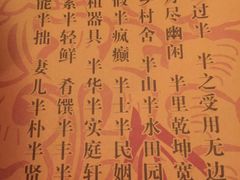 过半 半之受用无边
尽幽闲 半里乾坤宽
乡村舍 半山半水田园
半疯癫 半士半民姻
粗器具 半华半实庭轩
素半轻鲜 肴馔半丰半
能半拙 妻儿半朴半贤